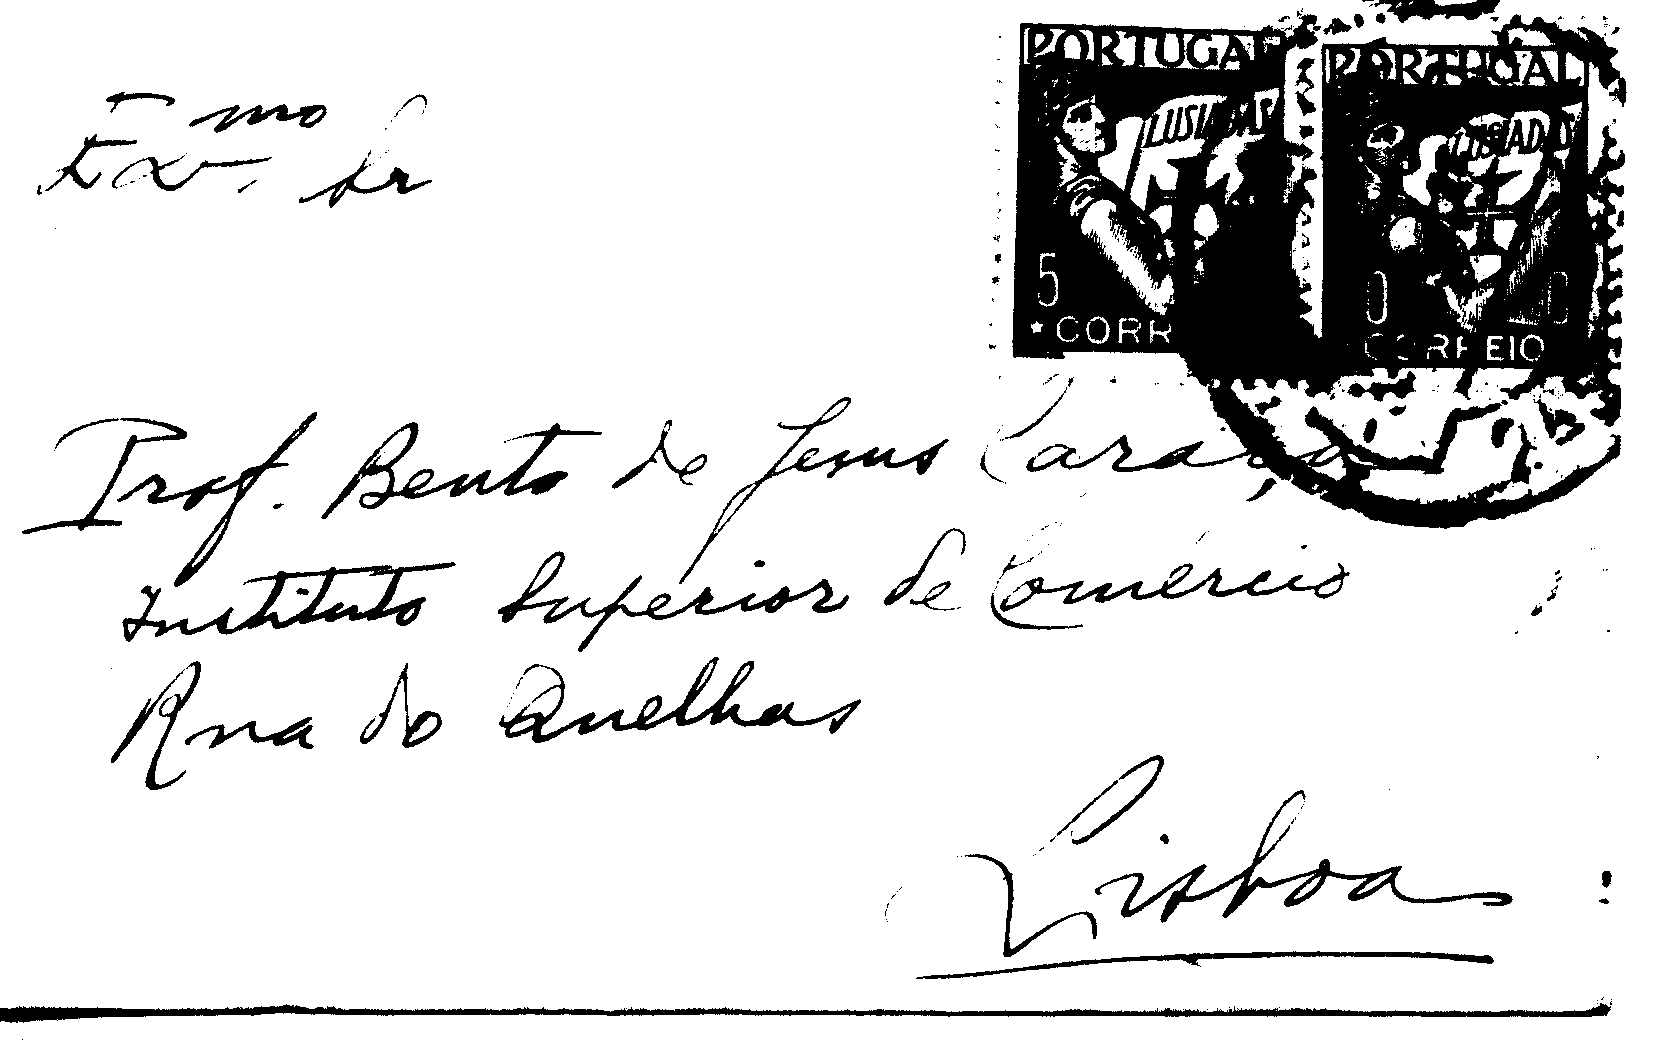 PORTUGAL PORTUGAL
LUSIADAS LUSIADAS
5
CORR CORREIO
Exmo. Sr
Prof. Bento de Jesus Caraça
Instituto Superior de Comércio
Rua do Quelhas
Lisboa